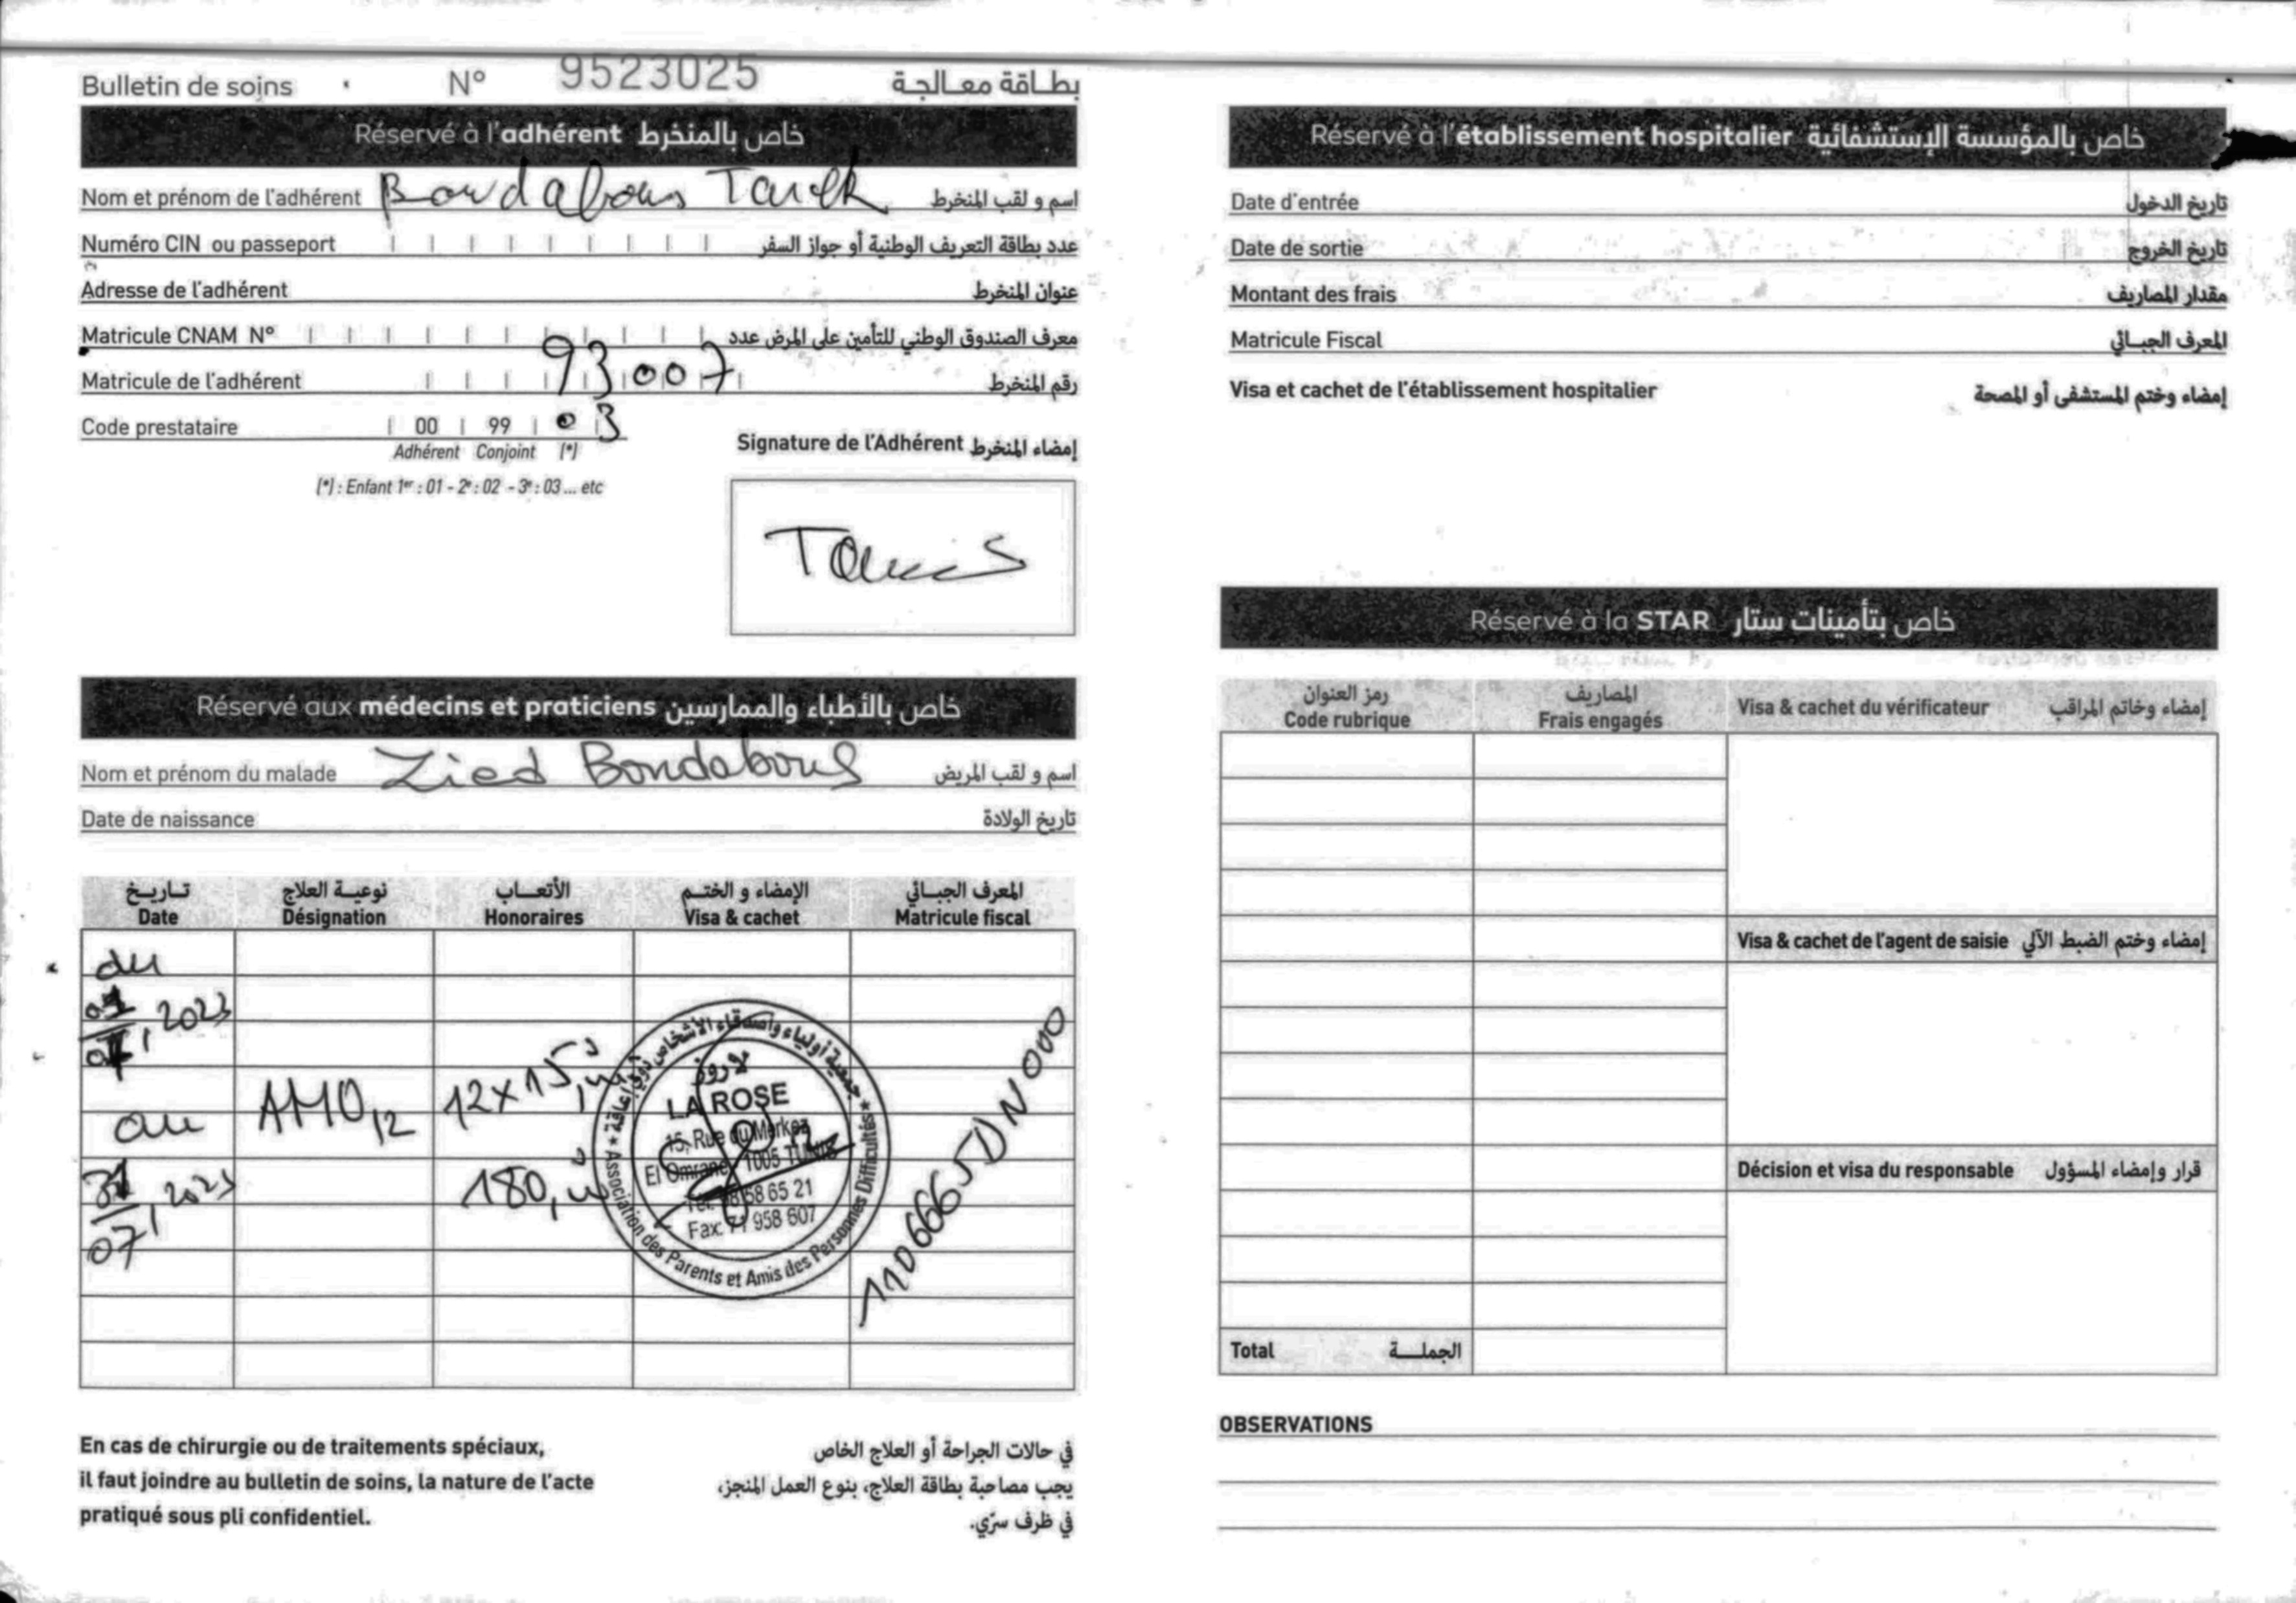 Bulletin de soins N° 9523025 بطاقة معالجة
Réservé à l'adhérent خاص بالمنخرط
Nom et prénom de l'adhérent Boudabous Tarek اسم و لقب المنخرط
Numéro CIN ou passeport عدد بطاقة التعريف الوطنية أو جواز السفر
Adresse de l'adhérent عنوان المنخرط
Matricule CNAM N° معرف الصندوق الوطني للتأمين على المرض عدد
Matricule de l'adhérent 93007 رقم المنخرط
Code prestataire 00 99 03
Adhérent Conjoint (*)
(*) : Enfant 1er : 01 - 2e : 02 - 3e : 03 ... etc
Signature de l'Adhérent إمضاء المنخرط
Réservé aux médecins et praticiens خاص بالأطباء والممارسين
Nom et prénom du malade Zied Boudabous اسم و لقب المريض
Date de naissance تاريخ الولادة
تاريخ نوعية العلاج الأتعاب الإمضاء و الختم المعرف الجبائي
Date Désignation Honoraires Visa & cachet Matricule fiscal
du
01/07/2023
au
31/07/2023
AMO 12
12 x 15,
180,
جمعية أولياء وأصدقاء الأشخاص ذوي إعاقة
لا روز
LA ROSE
15, Rue du Merkez
El Omrane 1005 TUNIS
58 65 21
Fax: 71 958 607
Association des Parents et Amis des Personnes Difficultés
1106665DN000
En cas de chirurgie ou de traitements spéciaux,
il faut joindre au bulletin de soins, la nature de l'acte
pratiqué sous pli confidentiel.
في حالات الجراحة أو العلاج الخاص
يجب مصاحبة بطاقة العلاج، بنوع العمل المنجز،
في ظرف سرّي.
Réservé à l'établissement hospitalier خاص بالمؤسسة الإستشفائية
Date d'entrée تاريخ الدخول
Date de sortie تاريخ الخروج
Montant des frais مقدار المصاريف
Matricule Fiscal المعرف الجبائي
Visa et cachet de l'établissement hospitalier إمضاء وختم المستشفى أو المصحة
Réservé à la STAR خاص بتأمينات ستار
رمز العنوان المصاريف
Code rubrique Frais engagés Visa & cachet du vérificateur إمضاء وخاتم المراقب
Visa & cachet de l'agent de saisie إمضاء وختم الضبط الآلي
Décision et visa du responsable قرار وإمضاء المسؤول
Total الجملة
OBSERVATIONS